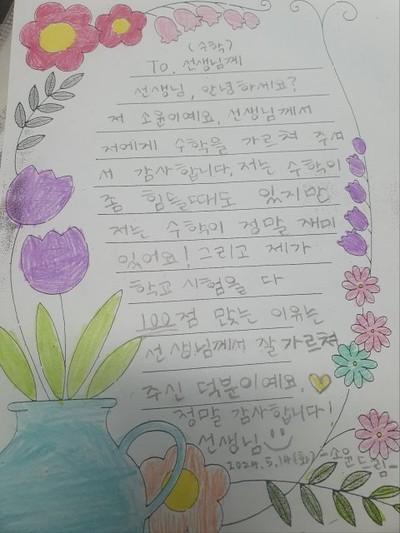 (수학)
To. 선생님께
선생님, 안녕하세요?
저 소윤이예요. 선생님께서
저에게 수학을 가르쳐 주셔
서 감사합니다. 저는 수학이
좀 힘들때도 있지만
저는 수학이 정말 재미
있어요! 그리고 제가
학교 시험을 다
100점 맞는 이유는
선생님께서 잘 가르쳐
주신 덕분이예요.
정말 감사합니다!
선생님
2024.5.14(화) -소윤드림-